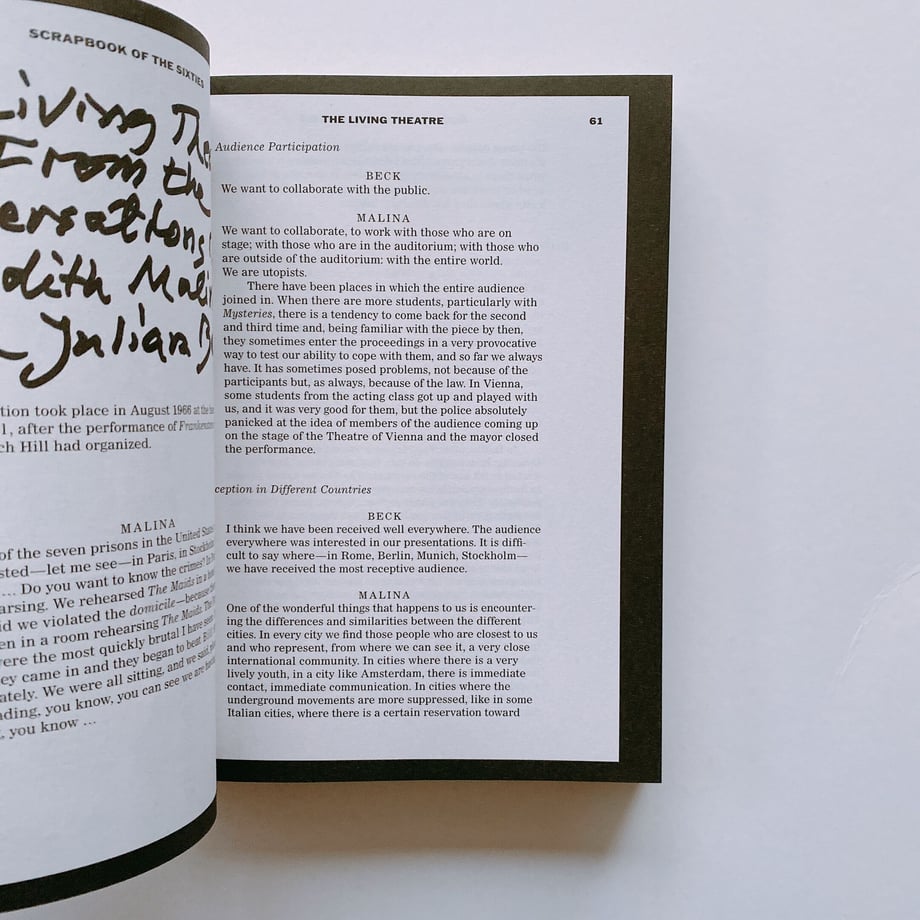 SCRAPBOOK OF THE SIXTIES
Living
From the
Julian
tion took place in August 1966 at the
1, after the performance of
ch Hill had organized.
MALINA
of the seven prisons in the United
sted—let me see—in Paris, in
... Do you want to know the crimes?
arsing. We rehearsed The Maids in a
id we violated the domicile—
en in a room rehearsing The Maids.
ere the most quickly brutal I have
ey came in and they began to beat
ately. We were all sitting, and we
ding, you know, you can see we are
, you know ...
THE LIVING THEATRE 61
Audience Participation
BECK
We want to collaborate with the public.
MALINA
We want to collaborate, to work with those who are on
stage; with those who are in the auditorium; with those who
are outside of the auditorium: with the entire world.
We are utopists.
There have been places in which the entire audience
joined in. When there are more students, particularly with
Mysteries, there is a tendency to come back for the second
and third time and, being familiar with the piece by then,
they sometimes enter the proceedings in a very provocative
way to test our ability to cope with them, and so far we always
have. It has sometimes posed problems, not because of the
participants but, as always, because of the law. In Vienna,
some students from the acting class got up and played with
us, and it was very good for them, but the police absolutely
panicked at the idea of members of the audience coming up
on the stage of the Theatre of Vienna and the mayor closed
the performance.
ception in Different Countries
BECK
I think we have been received well everywhere. The audience
everywhere was interested in our presentations. It is diffi-
cult to say where—in Rome, Berlin, Munich, Stockholm—
we have received the most receptive audience.
MALINA
One of the wonderful things that happens to us is encounter-
ing the differences and similarities between the different
cities. In every city we find those people who are closest to us
and who represent, from where we can see it, a very close
international community. In cities where there is a very
lively youth, in a city like Amsterdam, there is immediate
contact, immediate communication. In cities where the
underground movements are more suppressed, like in some
Italian cities, where there is a certain reservation toward